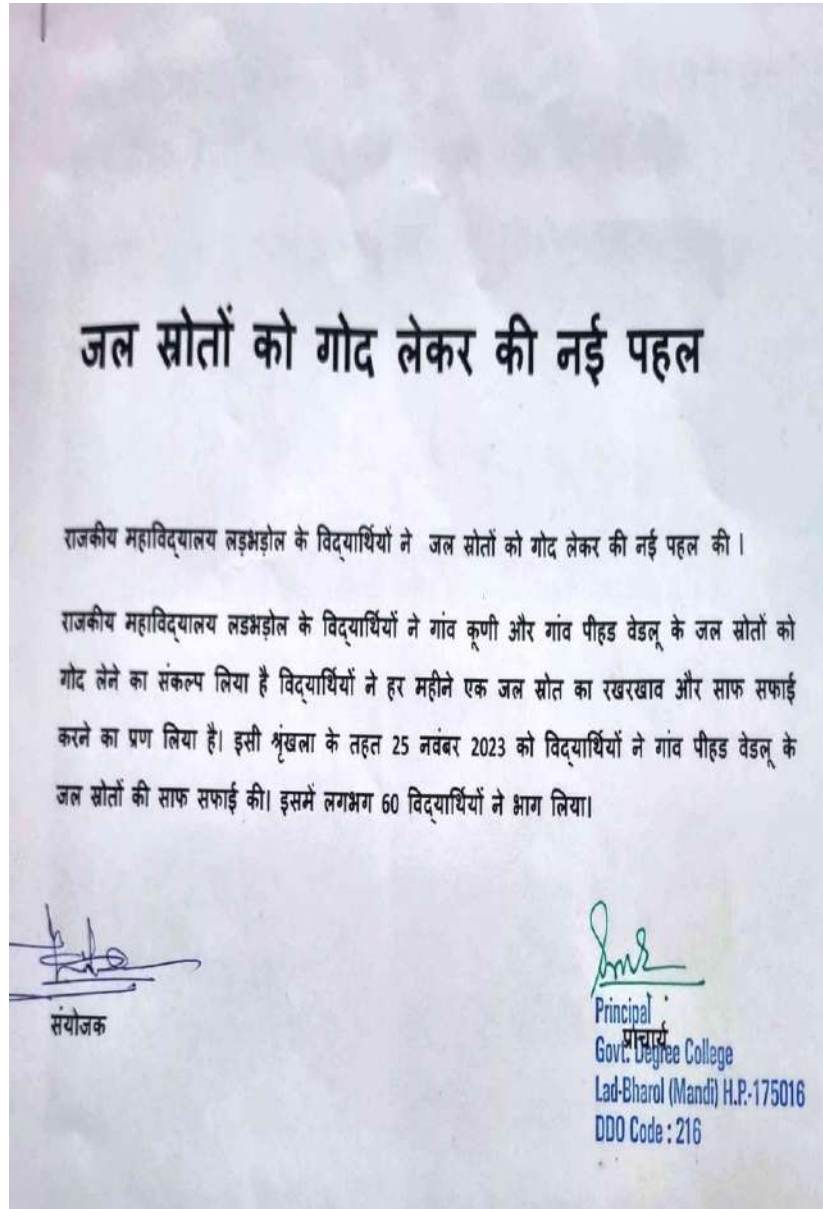 जल स्रोतों को गोद लेकर की नई पहल
राजकीय महाविद्यालय लड़भड़ोल के विद्यार्थियों ने जल स्रोतों को गोद लेकर की नई पहल की ।
राजकीय महाविद्यालय लडभड़ोल के विद्यार्थियों ने गांव कूणी और गांव पीहड वेडलू के जल स्रोतों को
गोद लेने का संकल्प लिया है विद्यार्थियों ने हर महीने एक जल स्रोत का रखरखाव और साफ सफाई
करने का प्रण लिया है। इसी श्रृंखला के तहत 25 नवंबर 2023 को विद्यार्थियों ने गांव पीहड वेडलू के
जल स्रोतों की साफ सफाई की। इसमें लगभग 60 विद्यार्थियों ने भाग लिया।
संयोजक
Principal
प्राचार्य
Govt. Degree College
Lad-Bharol (Mandi) H.P.-175016
DDO Code : 216